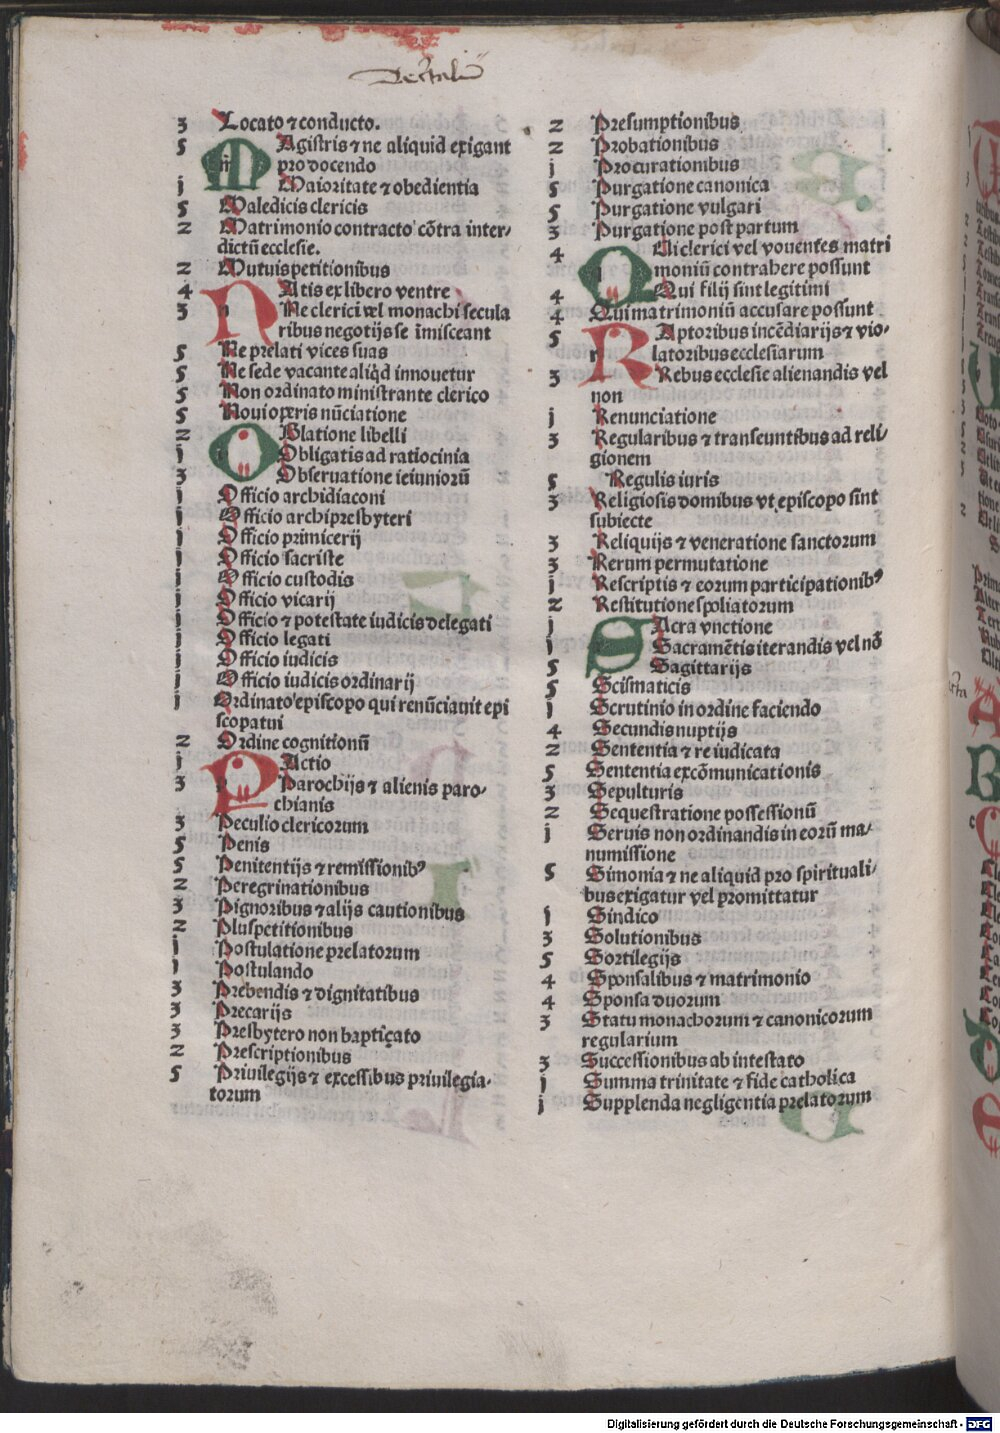 Decretaliū
3 Locato ⁊ conducto.
5 MAgistris ⁊ ne aliquid exigant
pro docendo
j Maioritate ⁊ obedientia
5 Maledicis clericis
2 Matrimonio contracto cōtra inter⸗
dictū ecclesie.
2 Mutuis petitionibus
4 NAtis ex libero ventre
3 Ne clerici vel monachi secula
ribus negotijs se īmisceant
5 Ne prelati vices suas
5 Ne sede vacante aliq̇d innouetur
5 Non ordinato ministrante clerico
5 Noui operis nūciatione
2 OBlatione libelli
j Obligatis ad ratiocinia
3 Obseruatione ieiuniorū
j Officio archidiaconi
j Officio archipresbyteri
j Officio primicerij
j Officio sacriste
j Officio custodis
j Officio vicarij
j Officio ⁊ potestate iudicis delegati
j Officio legati
j Officio iudicis
j Officio iudicis ordinarij
j Ordinato' episcopo qui renūciauit epi
scopatui
2 Ordine cognitionū
j PActio
3 Parochijs ⁊ alienis paro⸗
chianis
3 Peculio clericorum
5 Penis
5 Penitentijs ⁊ remissionibꝰ
2 Peregrinationibus
3 Pignoribus ⁊ alijs cautionibus
2 Pluspetitionibus
j Postulatione prelatorum
j Postulando
3 Prebendis ⁊ dignitatibus
3 Precarijs
3 Presbytero non baptiçato
2 Prescriptionibus
5 Priuilegijs ⁊ excessibus priuilegia⸗
torum
2 Presumptionibus
2 Probationibus
j Procurationibus
5 Purgatione canonica
5 Purgatione vulgari
3 Purgatione post partum
4 QUi clerici vel vouentes matri
moniū contrahere possunt
4 Qui filij sint legitimi
4 Qui matrimoniū accusare possunt
5 RAptoribus incēdiarijs ⁊ vio⸗
latoribus ecclesiarum
3 Rebus ecclesie alienandis vel
non
j Renunciatione
3 Regularibus ⁊ transeuntibus ad reli⸗
gionem
5 Regulis iuris
3 Religiosis domibus vt episcopo sint
subiecte
3 Reliquijs ⁊ veneratione sanctorum
3 Rerum permutatione
j Rescriptis ⁊ eorum participationibꝰ
2 Restitutione spoliatorum
j SAcra vnctione
j Sacramētis iterandis vel nō
5 Sagittarijs
5 Scismaticis
j Scrutinio in ordine faciendo
4 Secundis nuptijs
2 Sententia ⁊ re iudicata
5 Sententia excōmunicationis
3 Sepulturis
2 Sequestratione possessionū
j Seruis non ordinandis in eorū ma⸗
numissione
5 Simonia ⁊ ne aliquid pro spirituali⸗
bus exigatur vel promittatur
j Sindico
3 Solutionibus
5 Sortilegijs
4 Sponsalibus ⁊ matrimonio
4 Sponsa duorum
3 Statu monachorum ⁊ canonicorum
regularium
3 Successionibus ab intestato
j Summa trinitate ⁊ fide catholica
j Supplenda negligentia prelatorum
Digitalisierung gefördert durch die Deutsche Forschungsgemeinschaft - DFG